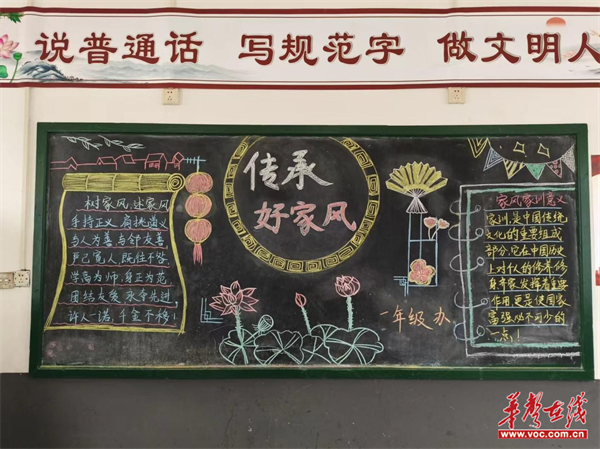 说普通话 写规范字 做文明人
传承
好家风
树家风,述家风
手持正义 肩挑道义
与人为善 与邻友善
严己宽人 既往不咎
学高为师,身正为范
团结友爱 永夺先进,
许人一诺,千金不移!
一年级办
家风家训意义
家训,是中国传统
文化的重要组成
部分,它在中国历史
上对个人的修养修
身齐家发挥着重要
作用 更是使国家
富强必不可少的
一点!
华声在线
www.voc.com.cn